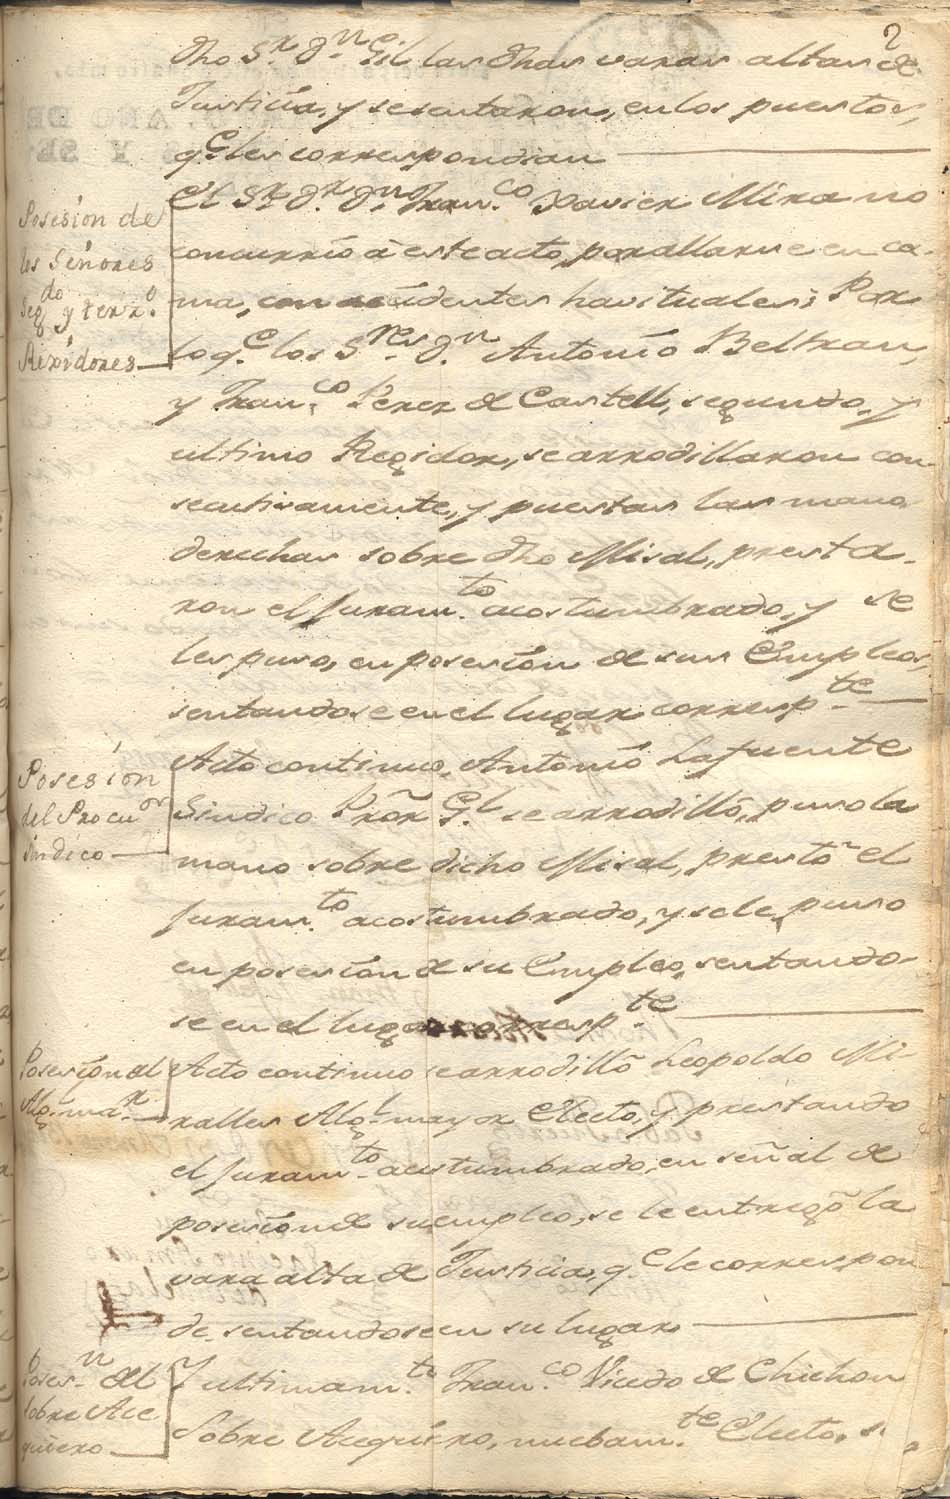 2
dho Sr. Dn. Gil las dhas varas altas de
Justicia, y se sentaron, en los puestos,
qe. les correspondian
Posesion de
los Señores
Segdo. y terzo.
Rexidores
El Sr. Dr. Dn. Franco. Xavier Mira no
concurrió á este acto, por allarse en ca-
ma, con accidentes havituales; Por
lo qe. los Sres. Dn. Antonio Beltran,
y Franco. Perez de Castell, segundo, y
ultimo Regidor, se arrodillaron con
secutivamente, y puestas las manos
derechas sobre dho Misal, presta-
ron el Juramto. acostumbrado, y se
les puso, en posesion de sus Empleos,
sentandose en el lugar correspte.
Posesion
del Procuor
sindico
Acto continuo, Antonio Lafuente
Sindico Pror. Gl. se arrodilló, puso la
mano sobre dicho Misal, prestó el
Juramto. acostumbrado, y se le puso
en posesion de su Empleo, sentando-
se en el lugar correspte.
Posesion del
Algl. mar.
Acto continuo se arrodilló Leopoldo Mi-
ralles Algl. mayor Electo, y prestando
el Juramto. acostumbrado, en señal de
posesion de su empleo, se le entregó la
vara alta de Justicia, qe. le correspon
de, sentandose en su lugar
Posesn. del
sobre Ace
quiero
Y ultimamte. Franco. Vicedo de Chichon
Sobre Acequiero, nuebamte. Electo, s